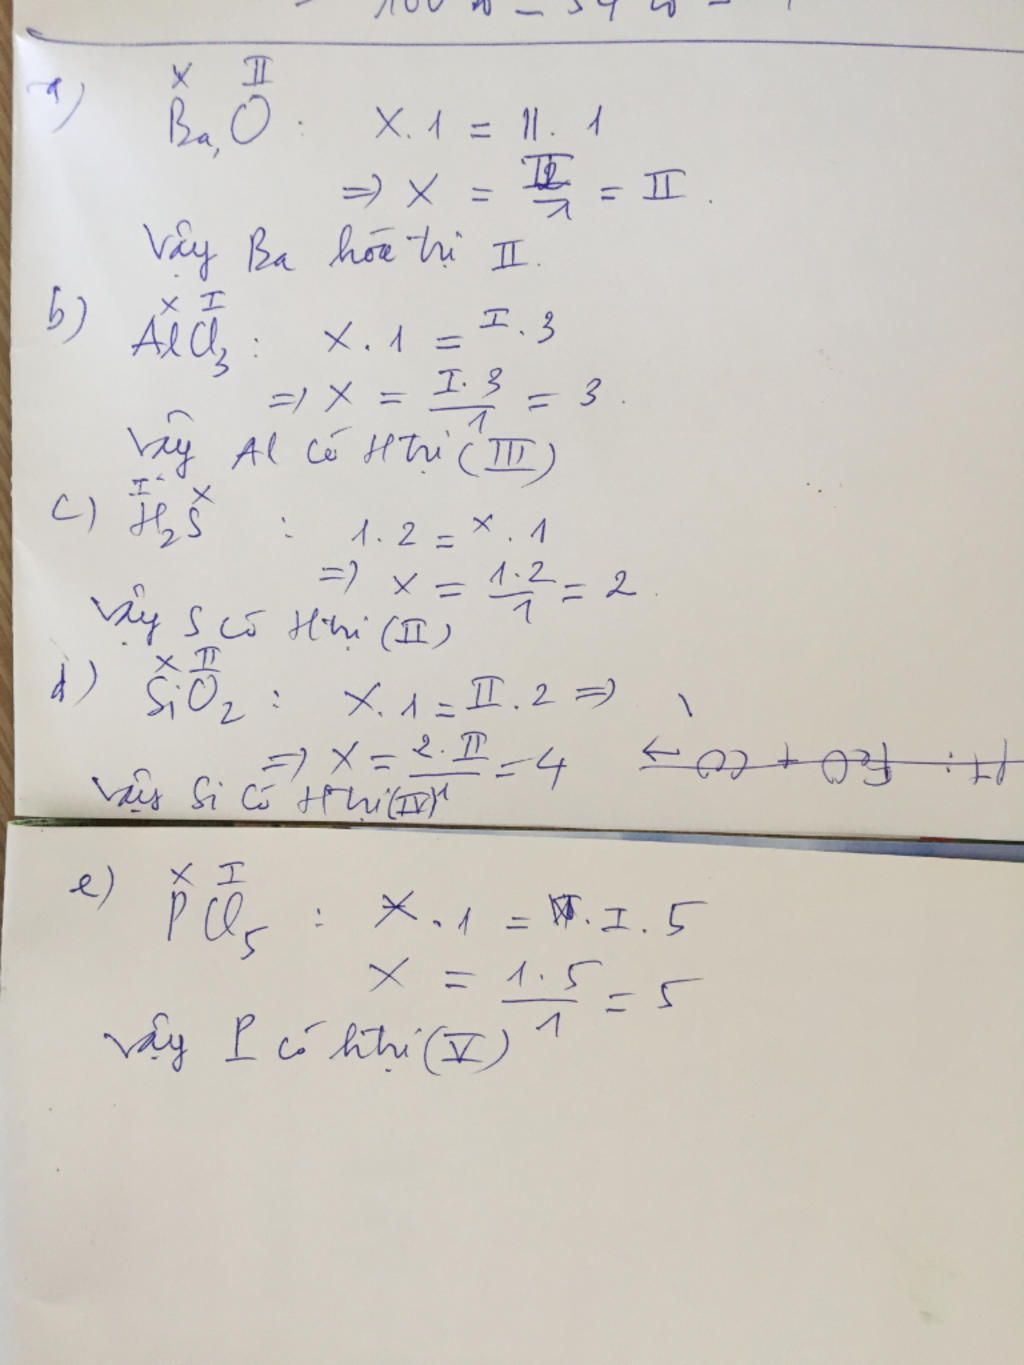 a) x II
BaO : x.1 = II.1
=> x = II/1 = II.
Vậy Ba hóa trị II.
b) x I
AlCl3 : x.1 = I.3
=> x = I.3/1 = 3.
Vậy Al có Htrị (III)
c) I x
H2S : 1.2 = x.1
=> x = 1.2/1 = 2.
Vậy S có Htrị (II)
d) x II
SiO2 : x.1 = II.2 =>
=> x = 2.II/1 = 4
Vậy Si có Htrị (IV)
PT: FeO + CO →
e) x I
PCl5 : x.1 = I.5
x = 1.5/1 = 5
Vậy P có htrị (V)